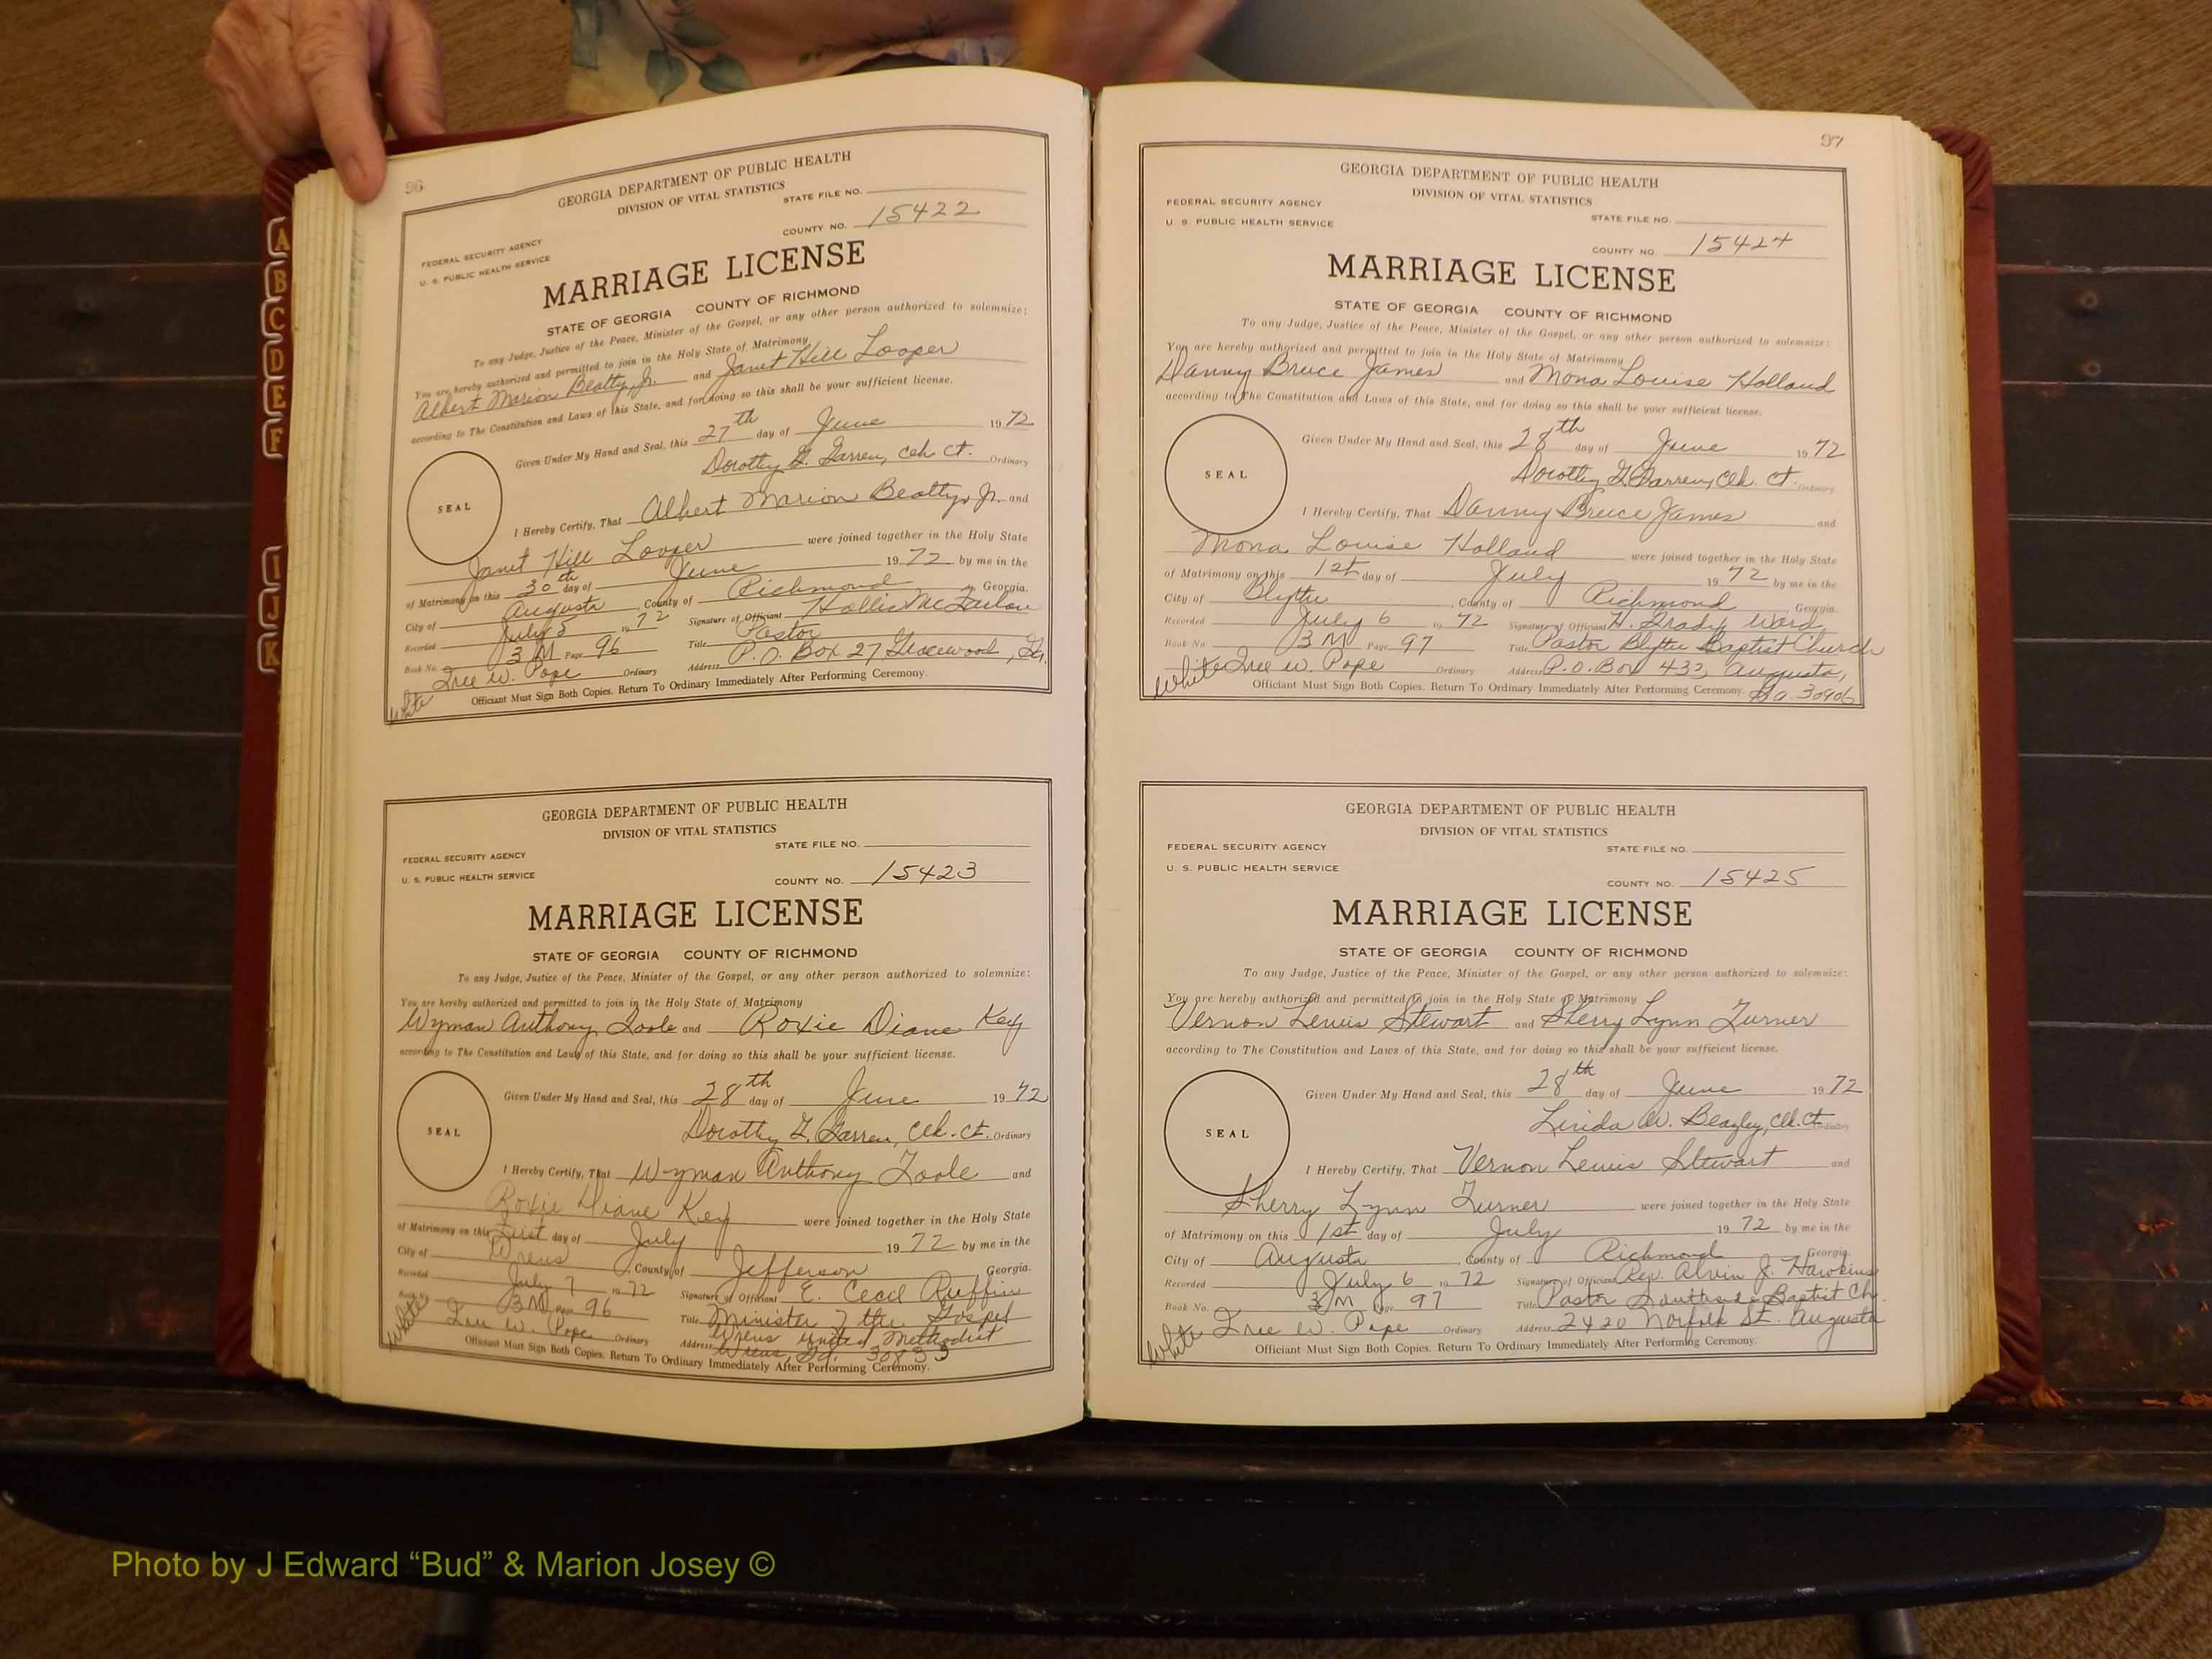 A
B
C
D
E
F
I
J
K
96
GEORGIA DEPARTMENT OF PUBLIC HEALTH
DIVISION OF VITAL STATISTICS
STATE FILE NO.
COUNTY NO. 15422
FEDERAL SECURITY AGENCY
U. S. PUBLIC HEALTH SERVICE
MARRIAGE LICENSE
STATE OF GEORGIA COUNTY OF RICHMOND
To any Judge, Justice of the Peace, Minister of the Gospel, or any other person authorized to solemnize:
You are hereby authorized and permitted to join in the Holy State of Matrimony
Albert Marion Beatty, Jr. and Janet Hill Looper
according to The Constitution and Laws of this State, and for doing so this shall be your sufficient license.
Given Under My Hand and Seal, this 27th day of June 1972
Dorothy G. Garren, Clk. Ct. Ordinary
SEAL
I Hereby Certify, That Albert Marion Beatty, Jr. and
Janet Hill Looper were joined together in the Holy State
of Matrimony on this 30th day of June 1972 by me in the
City of Augusta, County of Richmond, Georgia.
Recorded July 5 1972 Signature of Officiant Hollis McFarlow
Book No. 3M Page 96 Title Pastor
Iree W. Pope Ordinary Address P.O. Box 27 Gracewood, Ga.
White Officiant Must Sign Both Copies. Return To Ordinary Immediately After Performing Ceremony.
GEORGIA DEPARTMENT OF PUBLIC HEALTH
DIVISION OF VITAL STATISTICS
STATE FILE NO.
FEDERAL SECURITY AGENCY
U. S. PUBLIC HEALTH SERVICE
COUNTY NO. 15423
MARRIAGE LICENSE
STATE OF GEORGIA COUNTY OF RICHMOND
To any Judge, Justice of the Peace, Minister of the Gospel, or any other person authorized to solemnize:
You are hereby authorized and permitted to join in the Holy State of Matrimony
Wyman Anthony Toole and Roxie Diane Key
according to The Constitution and Laws of this State, and for doing so this shall be your sufficient license.
Given Under My Hand and Seal, this 28th day of June 1972
Dorothy G. Garren, Clk. Ct. Ordinary
SEAL
I Hereby Certify, That Wyman Anthony Toole and
Roxie Diane Key were joined together in the Holy State
of Matrimony on this First day of July 1972 by me in the
City of Wrens, County of Jefferson Georgia.
Recorded July 7 1972 Signature of Officiant E. Cecil Ruffin
Book No. 3M Page 96 Title Minister of the Gospel
Iree W. Pope Ordinary Address Wrens United Methodist
Wrens, Ga. 30833
White Officiant Must Sign Both Copies. Return To Ordinary Immediately After Performing Ceremony.
97
GEORGIA DEPARTMENT OF PUBLIC HEALTH
DIVISION OF VITAL STATISTICS
FEDERAL SECURITY AGENCY
U. S. PUBLIC HEALTH SERVICE
STATE FILE NO.
COUNTY NO. 15424
MARRIAGE LICENSE
STATE OF GEORGIA COUNTY OF RICHMOND
To any Judge, Justice of the Peace, Minister of the Gospel, or any other person authorized to solemnize:
You are hereby authorized and permitted to join in the Holy State of Matrimony
Danny Bruce James and Mona Louise Holland
according to The Constitution and Laws of this State, and for doing so this shall be your sufficient license.
Given Under My Hand and Seal, this 28th day of June 1972
Dorothy G. Garren, Clk. Ct. Ordinary
SEAL
I Hereby Certify, That Danny Bruce James and
Mona Louise Holland were joined together in the Holy State
of Matrimony on this 1st day of July 1972 by me in the
City of Blythe, County of Richmond Georgia.
Recorded July 6 1972 Signature of Officiant H. Grady Ward
Book No. 3M Page 97 Title Pastor Blythe Baptist Church
White Iree W. Pope Ordinary Address P.O. Box 433, Augusta,
Officiant Must Sign Both Copies. Return To Ordinary Immediately After Performing Ceremony. Ga. 30906
GEORGIA DEPARTMENT OF PUBLIC HEALTH
DIVISION OF VITAL STATISTICS
FEDERAL SECURITY AGENCY
STATE FILE NO.
U. S. PUBLIC HEALTH SERVICE
COUNTY NO. 15425
MARRIAGE LICENSE
STATE OF GEORGIA COUNTY OF RICHMOND
To any Judge, Justice of the Peace, Minister of the Gospel, or any other person authorized to solemnize:
You are hereby authorized and permitted to join in the Holy State of Matrimony
Vernon Lewis Stewart and Sherry Lynn Turner
according to The Constitution and Laws of this State, and for doing so this shall be your sufficient license.
Given Under My Hand and Seal, this 28th day of June 1972
Linda W. Beazley, Clk. Ct. Ordinary
SEAL
I Hereby Certify, That Vernon Lewis Stewart and
Sherry Lynn Turner were joined together in the Holy State
of Matrimony on this 1st day of July 1972 by me in the
City of Augusta, County of Richmond Georgia.
Recorded July 6 1972 Signature of Officiant Rev. Alvin J. Hawkins
Book No. 3M Page 97 Title Pastor Southside Baptist Ch.
White Iree W. Pope Ordinary Address 2420 Norfolk St. Augusta
Officiant Must Sign Both Copies. Return To Ordinary Immediately After Performing Ceremony.
Photo by J Edward “Bud” & Marion Josey ©